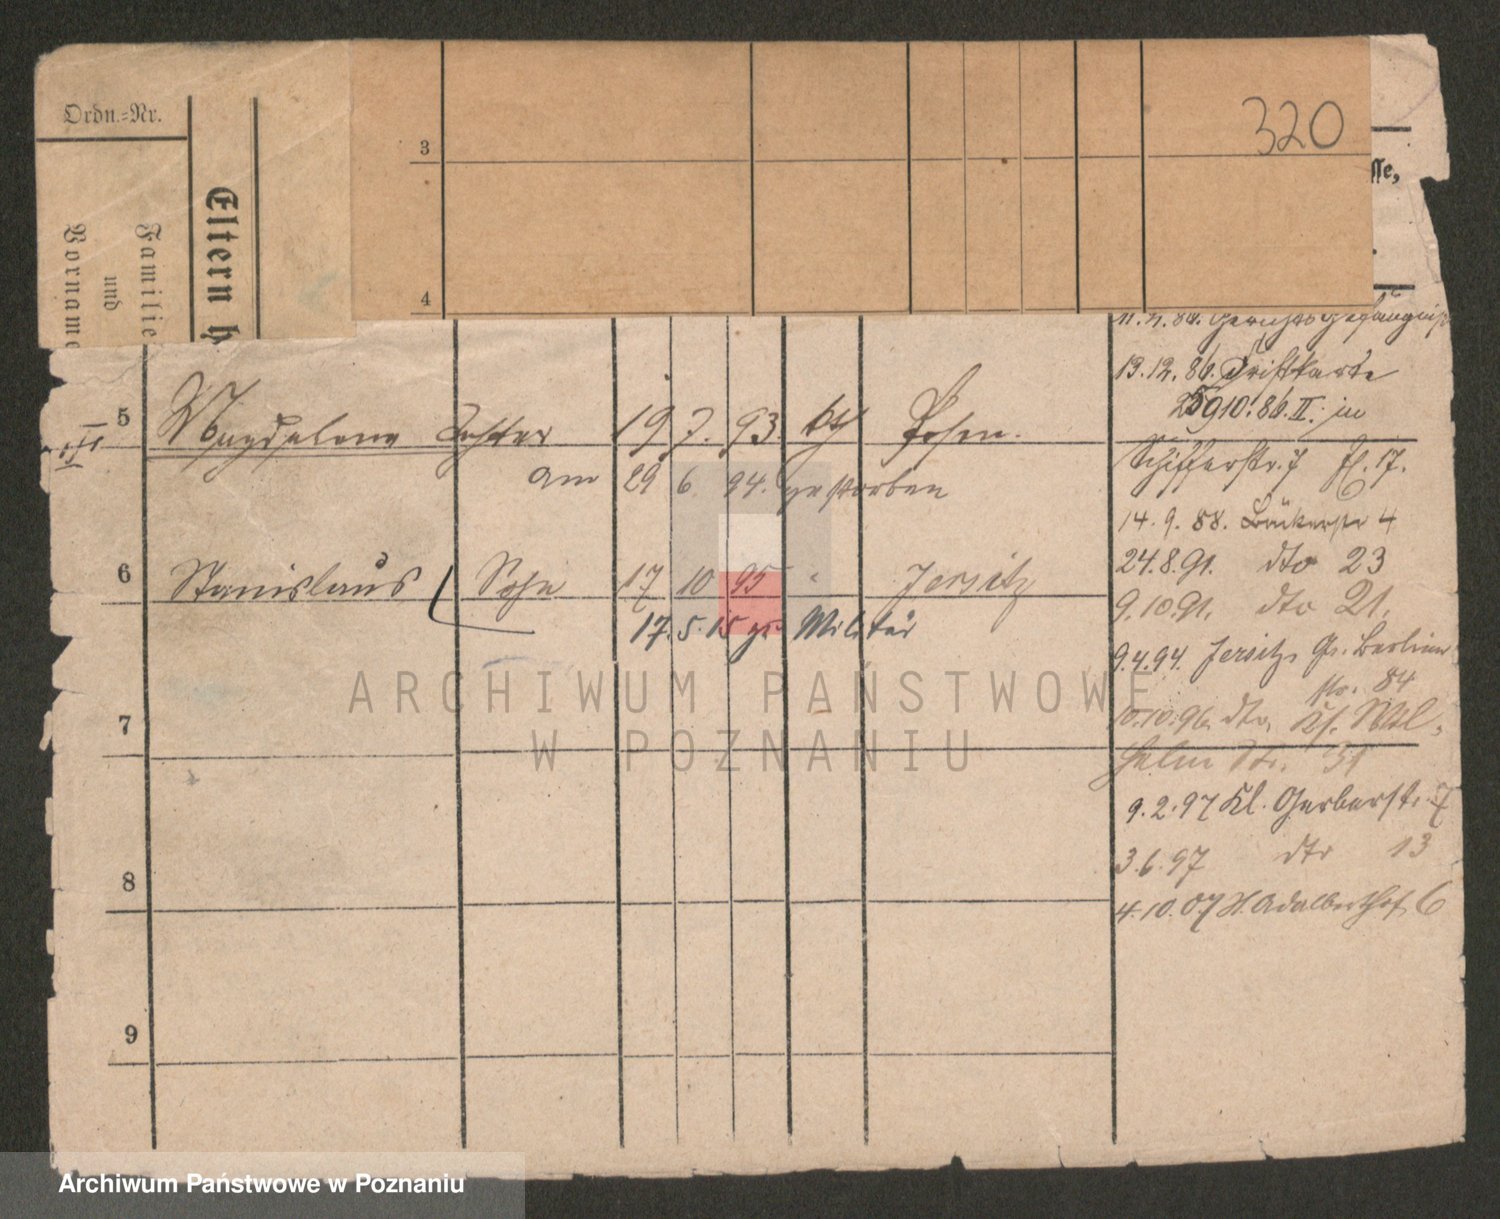 Ordn.-Nr.
Eltern
Familie
und
Vorname
3
320
4
sse,
11. 4. 86. Gerichts Gefängniss
13.12.86.
10.86. II. in
5 Magdalena Tochter 19 7. 93. kth Posen.
Schifferstr. 7
am 29 6 94. gestorben
14. 9. 88. Bäckerstr 4
24.8.91. dto 23
6 Stanislaus Sohn 17 10 95 " Jersitz
9.10.91. dto 21.
17. 5. 15 z. Militär
9.4.94. Jersitz, Gr. Berliner
str. 84
10.10.96. dto, Ks. Wil-
7
helm Str. 31
9.2.97 Kl. Gerberstr. 7
3.6.97 dto 13
8
4.10.07 Adalberthof 6
9
ARCHIWUM PAŃSTWOWE
W POZNANIU
Archiwum Państwowe w Poznaniu